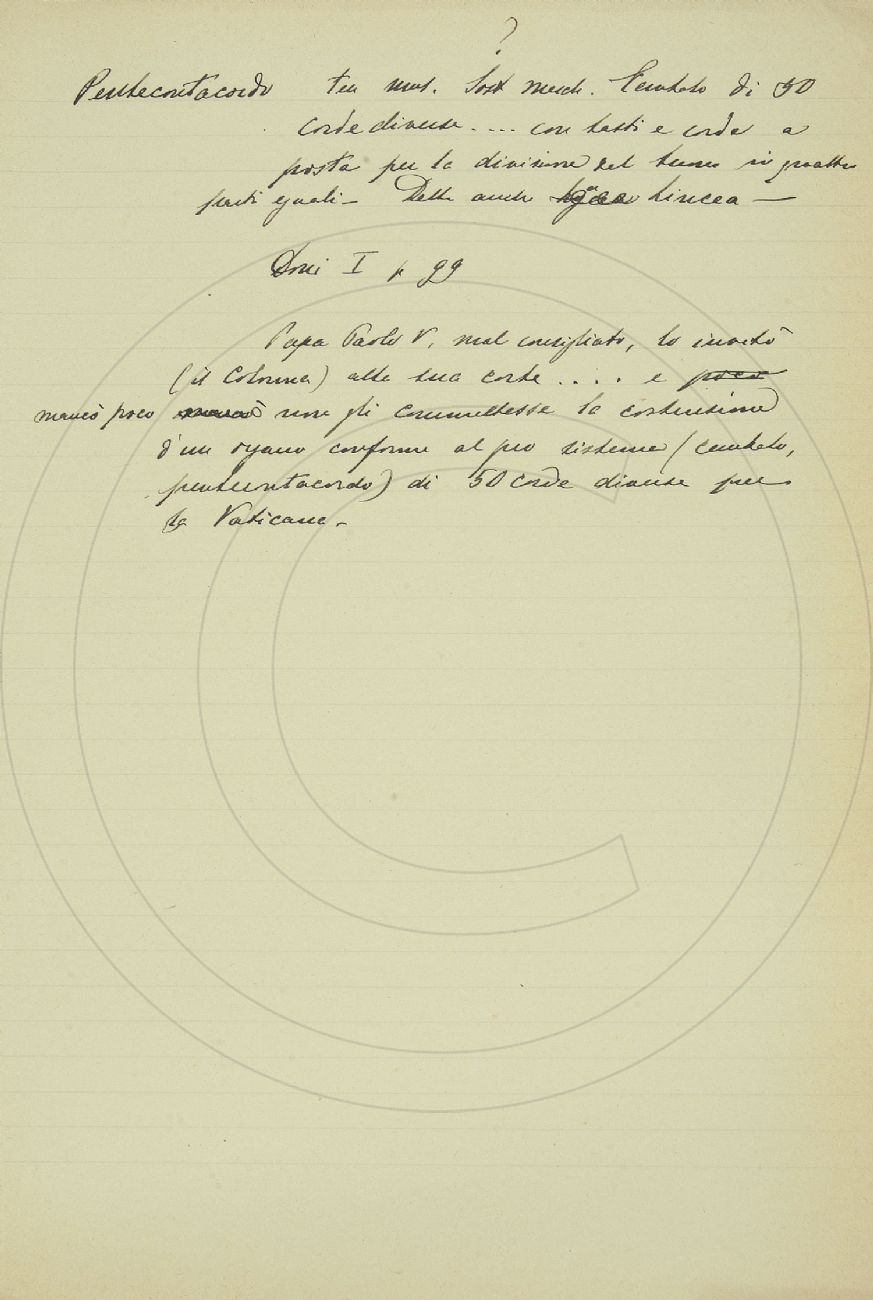 ?
Pentecontacordo ter mus. Sost masch. Cembalo di 50
corde diverse .... con tasti e corde a
posta per la divisione del tuono in quattro
parti eguali - Detto anche Lincea -
Doni I p 99
Papa Paolo V, mal consigliato, lo invitò
(il Colonna) alla sua corte .... e poco
mancò poco mancò non gli commettesse la costruzione
d'un organo conforme al suo sistema (cembalo,
pentecontacordo) di 50 corde diverse per
la Vaticana -